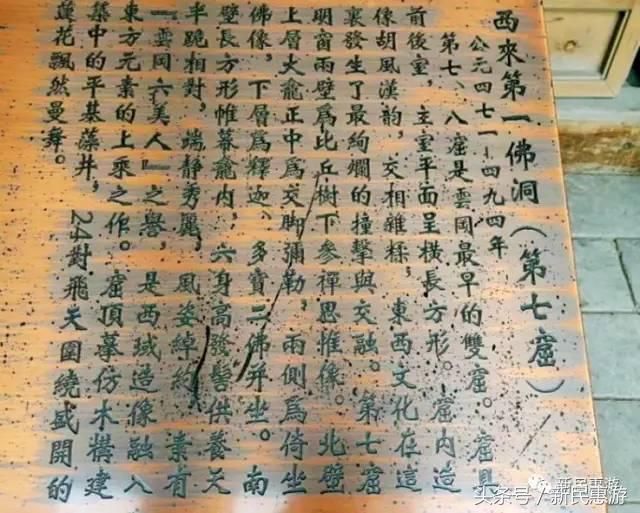 西來第一佛洞（第七窟）
公元四七一-四九四年
第七、八窟是雲岡最早的雙窟。窟具
前後室，主室平面呈橫長方形。窟内造
像胡風漢韵，交相雜糅，東西文化在這
裏發生了最絢爛的撞擊與交融。第七窟
明窗兩壁爲比丘樹下參禪思惟像。北壁
上層大龕正中爲交脚彌勒，兩側爲倚坐
佛像，下層爲釋迦、多寶二佛并坐。南
壁長方形帷幕龕内，六身高發髻供養天
半跪相對，端静秀麗，風姿綽約，素有
『雲岡六美人』之譽，是西域造像融入
東方元素的上乘之作。窟頂摹仿木構建
築中的平棊藻井，24對飛天圍繞盛開的
蓮花飄然曼舞。
新民惠游
头条号/新民惠游